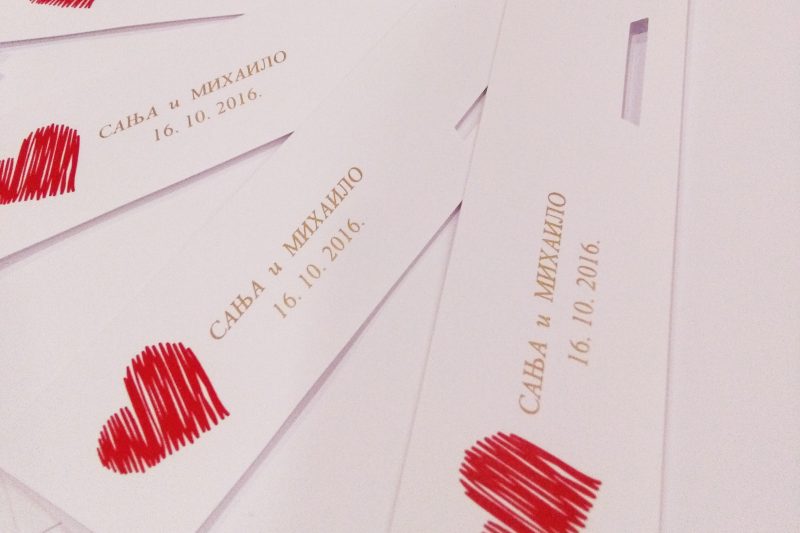 САЊА и МИХАИЛО
16. 10. 2016.
САЊА и МИХАИЛО
16. 10. 2016.
САЊА и МИХАИЛО
16. 10. 2016.